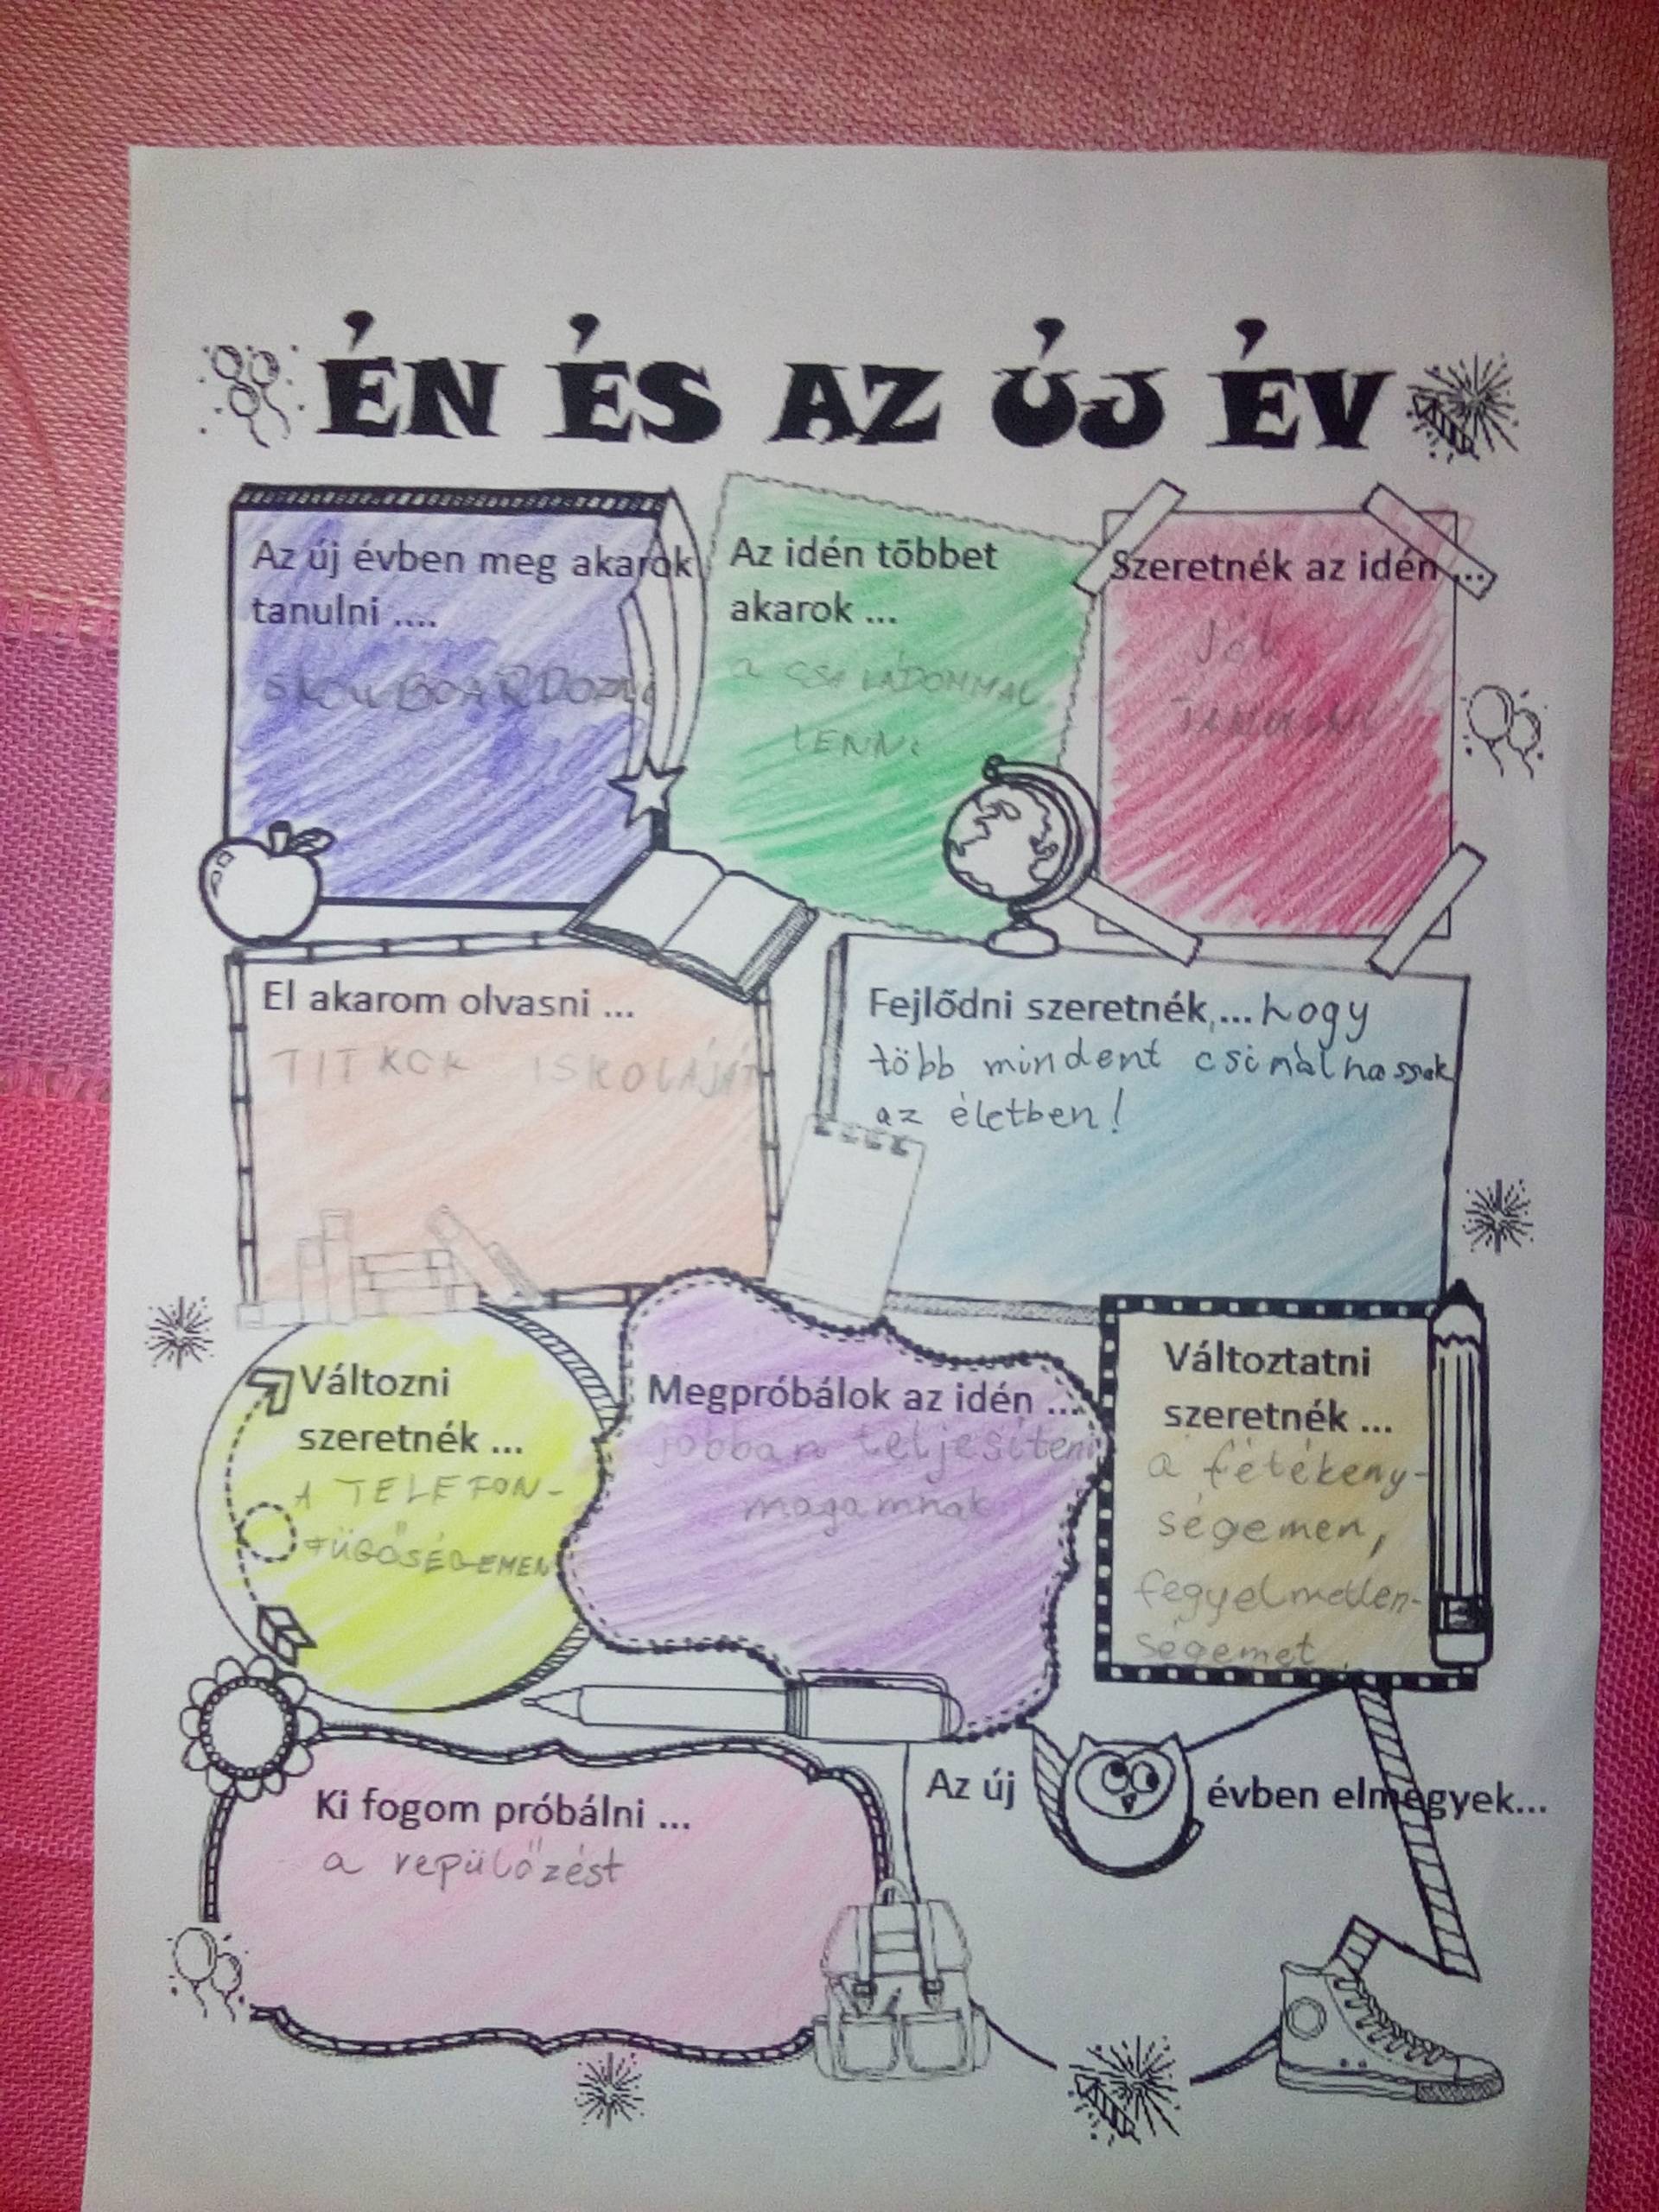 ÉN ÉS AZ ÚJ ÉV
Az új évben meg akarok
tanulni ....
SNOWBOARDOZNI
Az idén többet
akarok ...
a CSALÁDOMMAL
LENNI
Szeretnék az idén ...
Jól
TANULNI
El akarom olvasni ...
TITKOK ISKOLÁJÁT
Fejlődni szeretnék,... hogy
több mindent csinálhassak
az életben!
Változni
szeretnék ...
A TELEFON-
FÜGŐSÉGEMEN
Megpróbálok az idén ...
jobban teljesíteni
magamnak
Változtatni
szeretnék ...
a fétékeny-
ségemen,
fegyelmetlen-
ségemet.
Ki fogom próbálni ...
a repülőzést
Az új évben elmegyek...